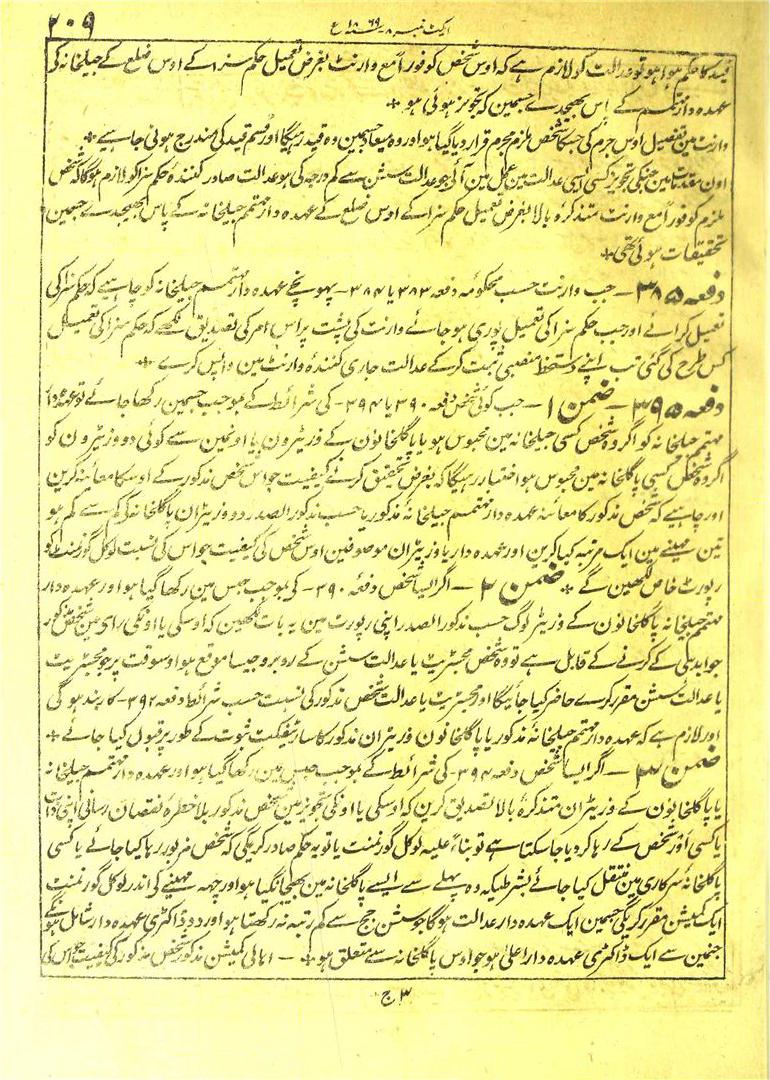 ایکٹ نمبر ۸ - ۱۸۶۹ ع
۲۰۹
قید کا حکم ہوا ہو تو عدالت کو لازم ہے کہ اوس شخص کو فوراً مع وارنٹ بغرض تعمیل حکم سزا کے اوس ضلع کے جیلخانہ کی
عہدہ دار مہتمم کے پاس بھیجدے جسمین کہ تجویز ہوئی ہو ٭
وارنٹ مین تفصیل اوس جرم کی جسکا شخص ملزم مجرم قرار دیا گیا ہو اور وہ میعاد جسمین وہ قید رہیگا اور قسم قید کی مندرج ہونی چاہیے ٭
اون مقدمات مین جنکی تجویز کسی ایسی عدالت مین عمل مین آئی ہو جو عدالت سشن سے کم درجہ کی ہو عدالت صادر کنندۂ حکم سزا کو لازم ہوگا کہ شخص
ملزم کو فوراً مع وارنٹ متذکرۂ بالا بغرض تعمیل حکم سزا کے اوس ضلع کے عہدہ دار مہتمم جیلخانہ کے پاس بھیجدے جسمین
تحقیقات ہوئی تھی ٭
دفعہ ۳۸۵ - جب وارنٹ حسب محکومہ دفعہ ۳۸۳ یا ۳۸۴ - پہونچے عہدہ دار مہتمم جیلخانہ کو چاہیے کہ حکم سزا کی
تعمیل کرائے اور جب حکم سزا کی تعمیل پوری ہو جائے وارنٹ کی پشت پر اس امر کی تصدیق لکھے کہ حکم سزا کی تعمیل
کس طرح کی گئی تب اپنے دستخط منصبی ثبت کرکے عدالت جاری کنندۂ وارنٹ مین واپس کرے ٭
دفعہ ۳۹۵ - ضمن ۱ - جب کوئی شخص دفعہ ۳۹۰ یا ۳۹۴ - کی شرائط کے بموجب حبس مین رکھا جائے تو عہدہ دار
مہتمم جیلخانہ کو اگر وہ شخص کسی جیلخانہ مین محبوس ہو یا پاگلخانون کے وزیٹرون یا اونمین سے کوئی دو وزیٹرون کو
اگر وہ شخص کسی پاگلخانہ مین محبوس ہو اختیار رہیگا کہ بغرض تحقیق کرنے کیفیت حواس شخص مذکور کے اوسکا معائنہ کرین
اور چاہیے کہ شخص مذکور کا معائنہ عہدہ دار مہتمم جیلخانۂ مذکور یا حسب مذکور الصدر دو وزیٹران پاگلخانہ کی کم سے کم ہو
تین مہینے مین ایک مرتبہ کیا کرین اور عہدہ دار یا وزیٹران موصوفین اوس شخص کی کیفیت حواس کی نسبت لوکل گورنمنٹ کو
رپورٹ خاص لکھین گے ٭ ضمن ۲ - اگر ایسا شخص دفعہ ۳۹۰ - کی بموجب حبس مین رکھا گیا ہو اور عہدہ دار
مہتمم جیلخانہ یا پاگلخانون کے وزیٹر لوگ حسب مذکور الصدر اپنی رپورٹ مین یہ بات لکھین کہ اوسکی یا اونکی رای مین شخص مذکور
جوابدہی کے کرنے کے قابل ہے تو وہ شخص مجسٹریٹ یا عدالت سشن کے روبرو جیسا موقع ہو اوسوقت پر جو مجسٹریٹ
یا عدالت سشن مقرر کرے حاضر کیا جائیگا اور مجسٹریٹ یا عدالت شخص مذکور کی نسبت حسب شرائط دفعہ ۳۹۲ - کاربند ہوگی
اور لازم ہے کہ عہدہ دار مہتمم جیلخانۂ مذکور یا پاگلخانون وزیٹران مذکور کا سارٹیفکٹ ثبوت کے طور پر قبول کیا جائے ٭
ضمن ۳ - اگر ایسا شخص دفعہ ۳۹۴ - کی شرائط کے بموجب حبس مین رکھا گیا ہو اور عہدہ دار مہتمم جیلخانہ
یا پاگلخانون کے وزیٹران متذکرۂ بالا تصدیق کرین کہ اوسکی یا اونکی تجویز مین شخص مذکور بلا خطرہ نقصان رسانی اپنی ذات
یا کسی اور شخص کے رہا کر دیا جا سکتا ہے تو بناءً علیہ لوکل گورنمنٹ یا تو یہ حکم صادر کریگی کہ شخص مزبور رہا کیا جائے یا کسی
پاگلخانۂ سرکاری مین منتقل کیا جائے بشرطیکہ وہ پہلے سے ایسے پاگلخانہ مین بھیجا نگیا ہو اور چھہ مہینے کی اندر لوکل گورنمنٹ
ایک کمیشن مقرر کریگی جسمین ایک عہدہ دار عدالت ہوگا جو سشن جج سے کم رتبہ نہ رکھتا ہو اور دو ڈاکٹری عہدہ دار شامل ہونگے
جنمین سے ایک ڈاکٹری عہدہ دار اعلیٰ ہو جو اوس پاگلخانہ سے متعلق ہو ٭ - اہالی کمیشن مذکور شخص مذکور کی کیفیت حواس کی
۳ ج